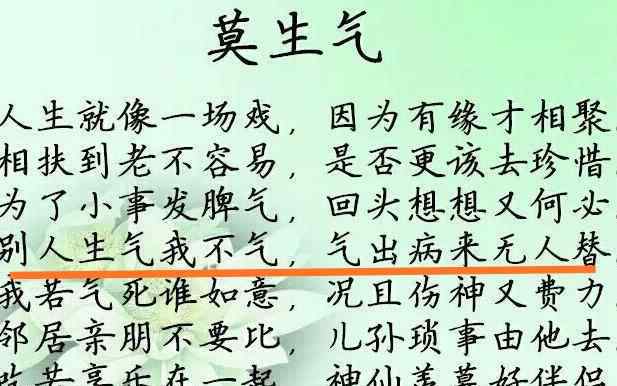 莫生气
人生就像一场戏，因为有缘才相聚，
相扶到老不容易，是否更该去珍惜，
为了小事发脾气，回头想想又何必，
别人生气我不气，气出病来无人替，
我若气死谁如意，况且伤神又费力，
邻居亲朋不要比，儿孙琐事由他去，
吃苦享乐在一起，神仙羡慕好伴侣